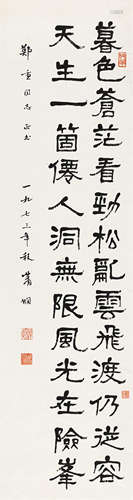 暮色蒼茫看勁松亂雲飛渡仍從容
天生一箇僊人洞無限風光在險峯
鄭重同志正
一九七三年秋蕭嫻